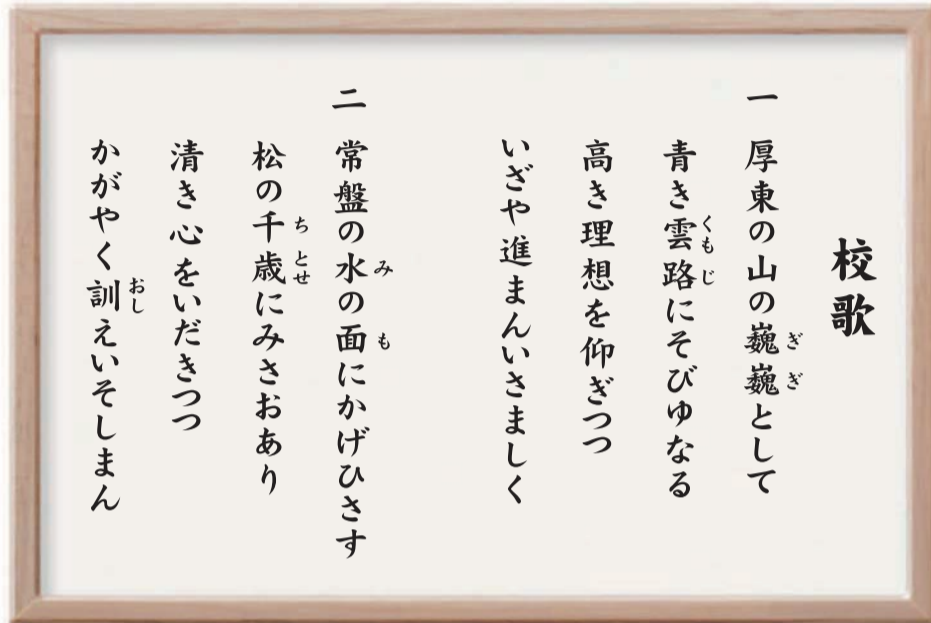 校歌
一 厚東の山の巍巍として
青き雲路にそびゆなる
高き理想を仰ぎつつ
いざや進まんいさましく
二 常盤の水の面にかげひさす
松の千歳にみさおあり
清き心をいだきつつ
かがやく訓えいそしまん